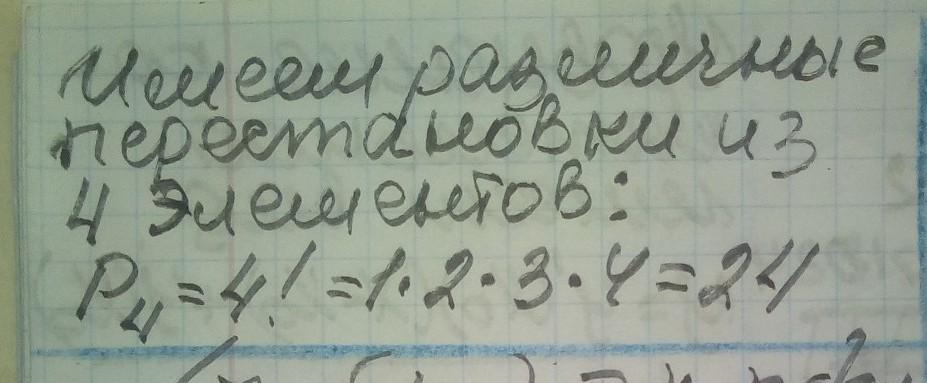 Имеем различные
перестановки из
4 элементов:
P₄ = 4! = 1·2·3·4 = 24